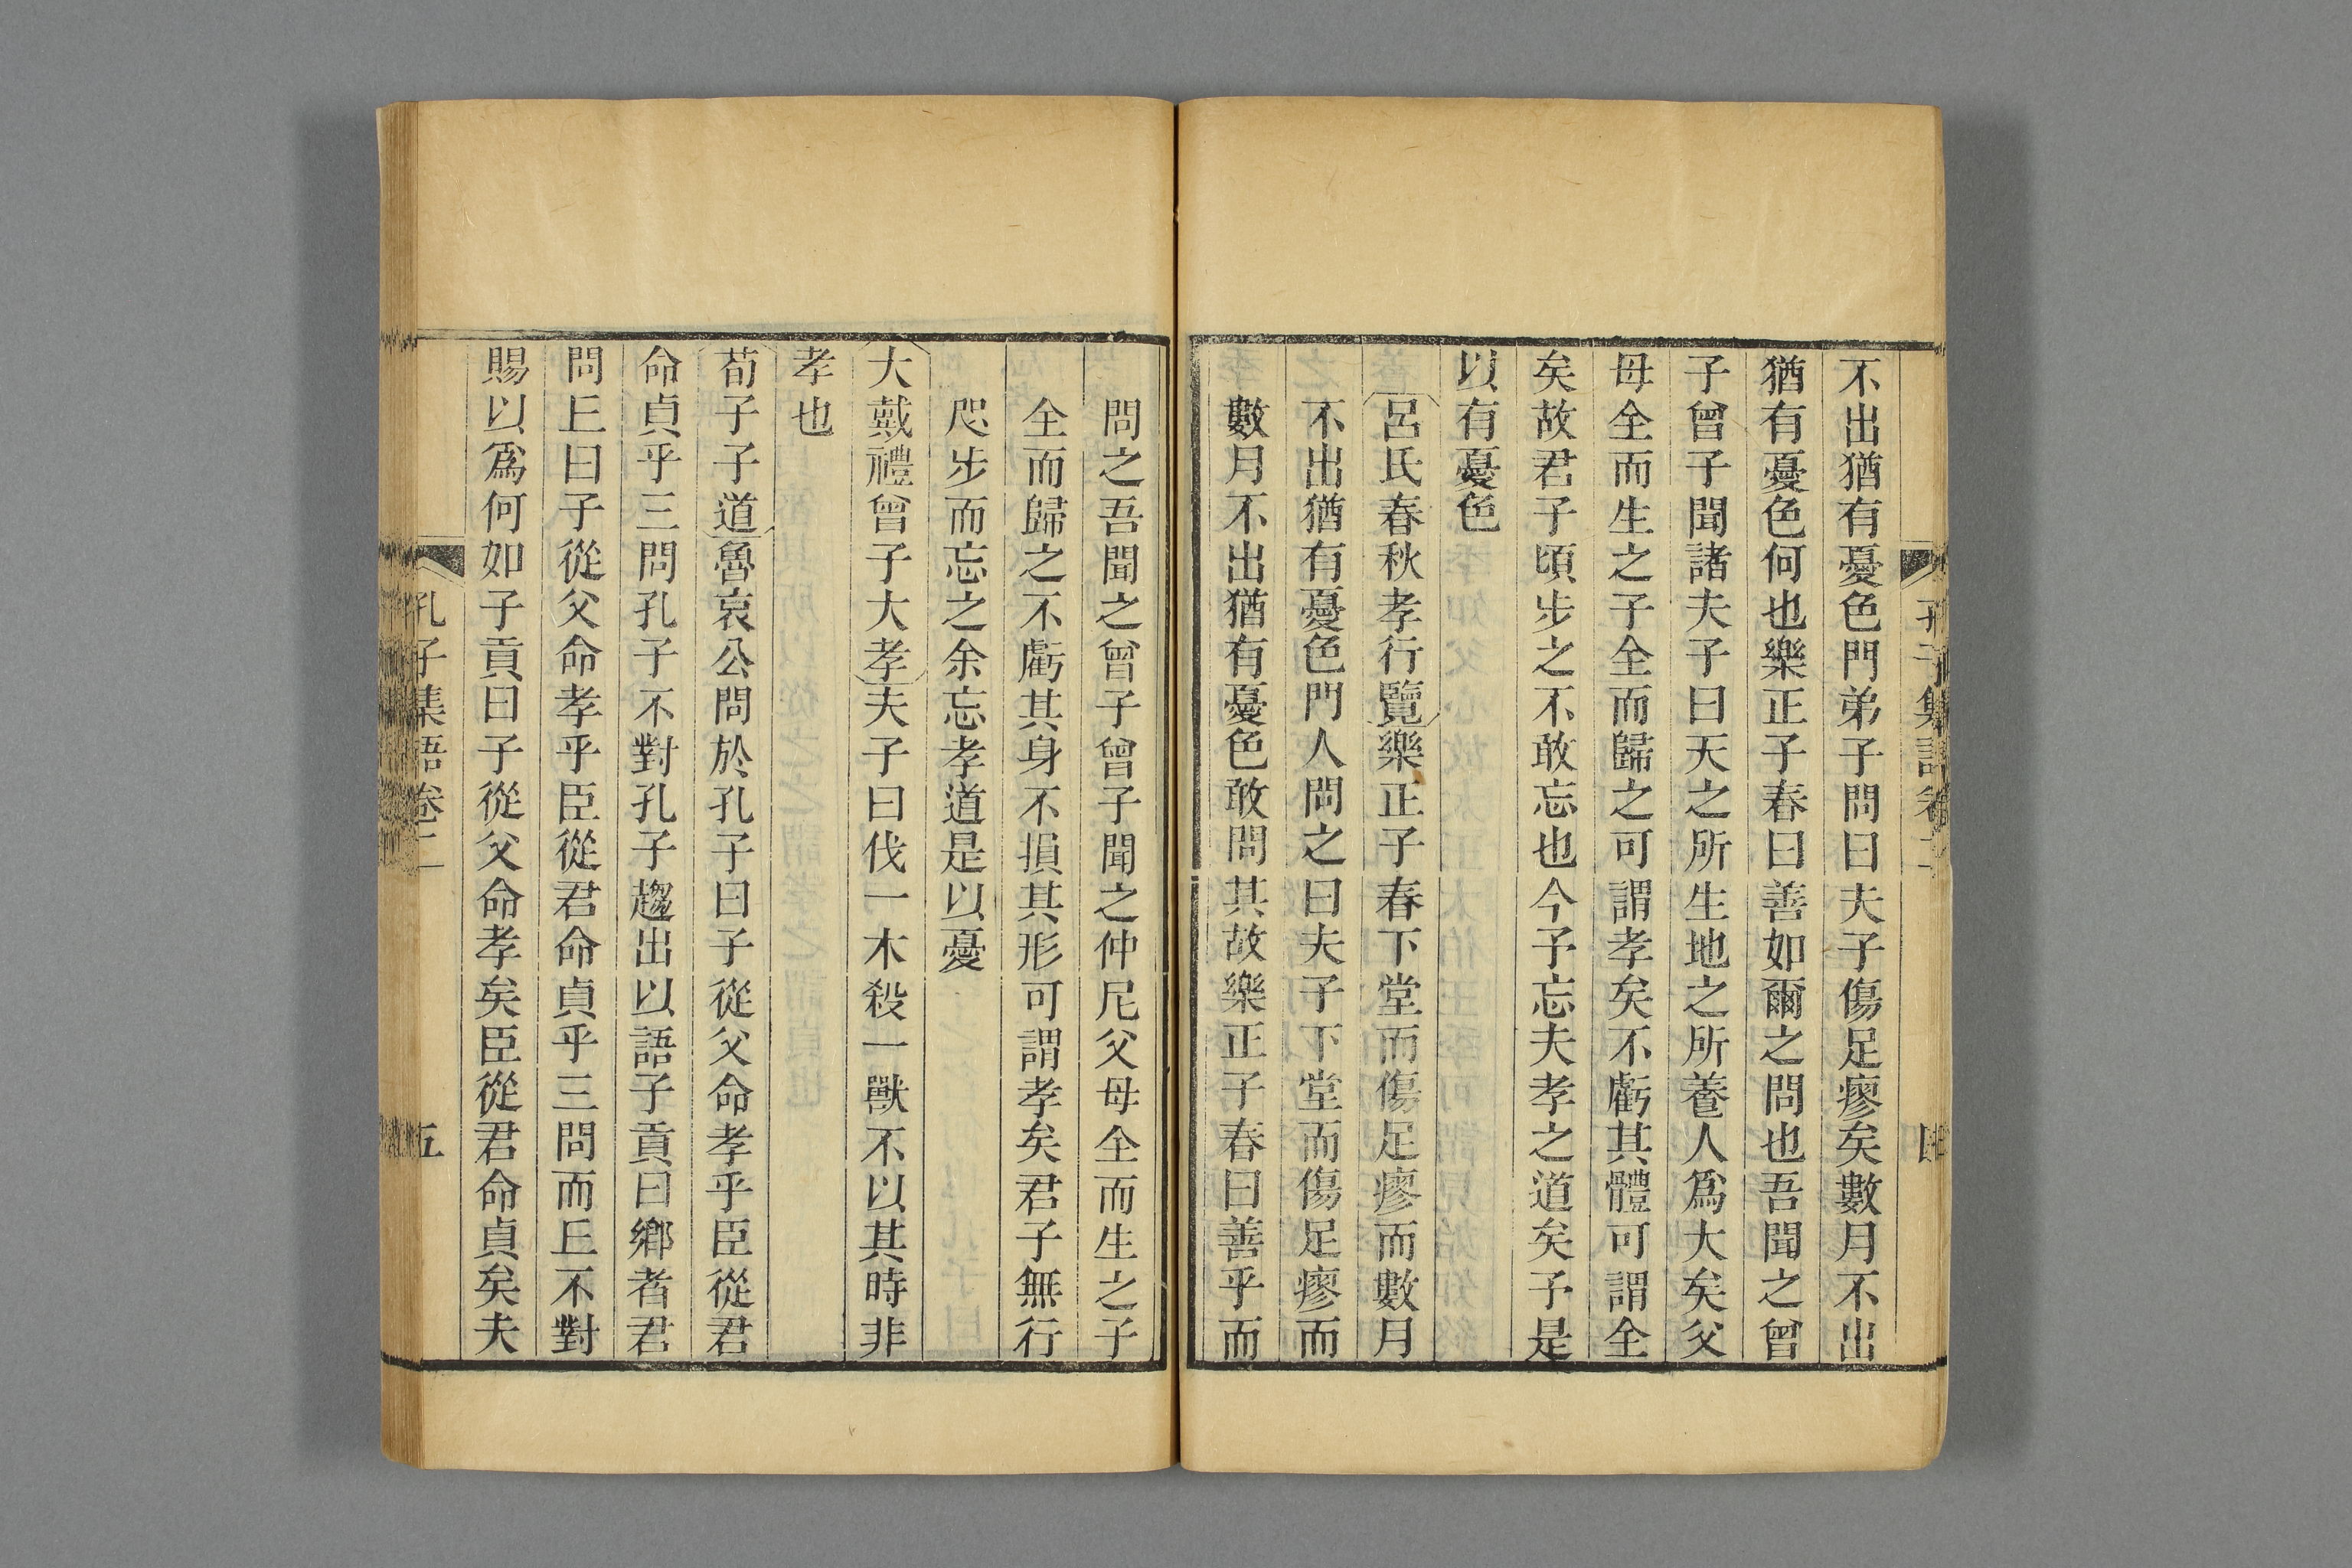 孔子集語卷二
四
不出猶有憂色門弟子問曰夫子傷足瘳矣數月不出
猶有憂色何也樂正子春曰善如爾之問也吾聞之曾
子曾子聞諸夫子曰天之所生地之所養人爲大矣父
母全而生之子全而歸之可謂孝矣不虧其體可謂全
矣故君子頃步之不敢忘也今予忘夫孝之道矣予是
以有憂色
呂氏春秋孝行覽樂正子春下堂而傷足瘳而數月
不出猶有憂色門人問之曰夫子下堂而傷足瘳而
數月不出猶有憂色敢問其故樂正子春曰善乎而
問之吾聞之曾子曾子聞之仲尼父母全而生之子
全而歸之不虧其身不損其形可謂孝矣君子無行
咫步而忘之余忘孝道是以憂
大戴禮曾子大孝夫子曰伐一木殺一獸不以其時非
孝也
荀子子道魯哀公問於孔子曰子從父命孝乎臣從君
命貞乎三問孔子不對孔子趨出以語子貢曰鄉者君
問丘曰子從父命孝乎臣從君命貞乎三問而丘不對
賜以爲何如子貢曰子從父命孝矣臣從君命貞矣夫
孔子集語卷二
五